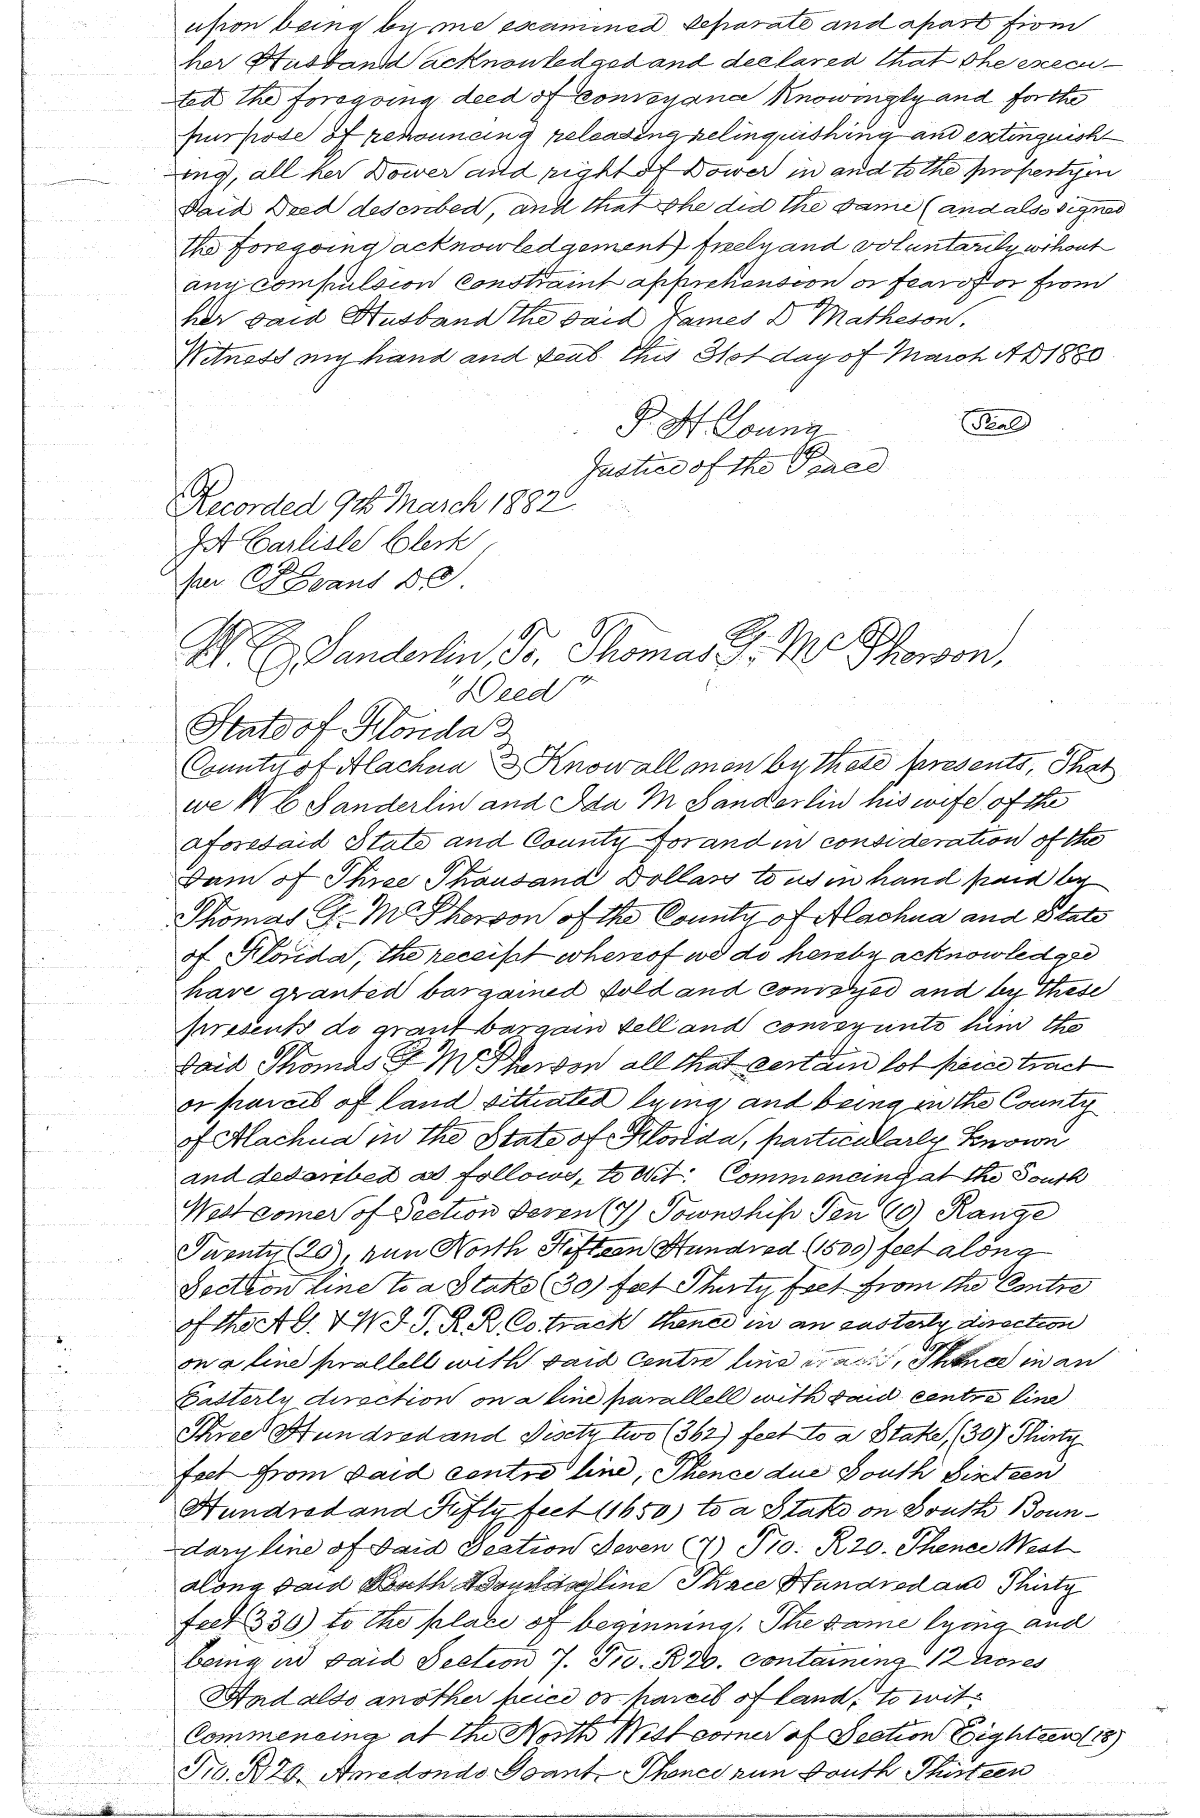 upon being by me examined separate and apart from
her Husband acknowledged and declared that she execu-
ted the foregoing deed of conveyance Knowingly and for the
purpose of renouncing releasing relinquishing and extinguish
ing, all her Dower and right of Dower in and to the property in
said Deed described, and that she did the same (and also signed
the foregoing acknowledgement) freely and voluntarily wihout
any compulsion constraint apprehension or fear of or from
her said Husband the said James D Matheson.
Witness my hand and seal this 31st day of March AD 1880
P. H. Young (Seal)
Justice of the Peace
Recorded 9th March 1882
J A Carlisle Clerk
per Evans D.C.
W. C. Sanderlin, To, Thomas G. McPherson,
"Deed"
State of Florida }
County of Alachua } Know all men by these presents, That
we W C Sanderlin and Ida M Sanderlin his wife of the
aforesaid State and County for and in consideration of the
sum of Three Thousand Dollars to us in hand paid by
Thomas G. McPherson of the County of Alachua and State
of Florida, the receipt whereof we do hereby acknowledge
have granted bargained sold and conveyed and by these
presents do grant bargain sell and convey unto him the
said Thomas G McPherson all that certain lot peice tract
or parcel of land sittuated lying and being in the County
of Alachua in the State of Florida, particularly Known
and described as follows, to wit: Commencing at the South
West corner of Section Seven (7) Township Ten (10) Range
Twenty (20), run North Fifteen Hundred (1500) feet along
Section line to a Stake (30) feet Thirty feet from the Centre
of the A G. & W I T. R. R. Co. track thence in an easterly direction
on a line prallell with said Centre line, Thence in an
Easterly direction on a line parallell with said centre line
Three Hundred and Sixty two (362) feet to a Stake, (30) Thirty
feet from said centre line, Thence due South Sixteen
Hundred and Fifty feet (1650) to a Stake on South Boun-
dary line of said Section Seven (7) T10. R20. Thence West
along said South Boundary line Three Hundred and Thirty
feet (330) to the place of beginning. The same lying and
being in said Section 7. T10. R20. containing 12 Acres
And also another peice or parcel of land, to wit:
Commencing at the North West corner of Section Eighteen (18)
T10. R20. Arredondo Grant. Thence run South Thirteen